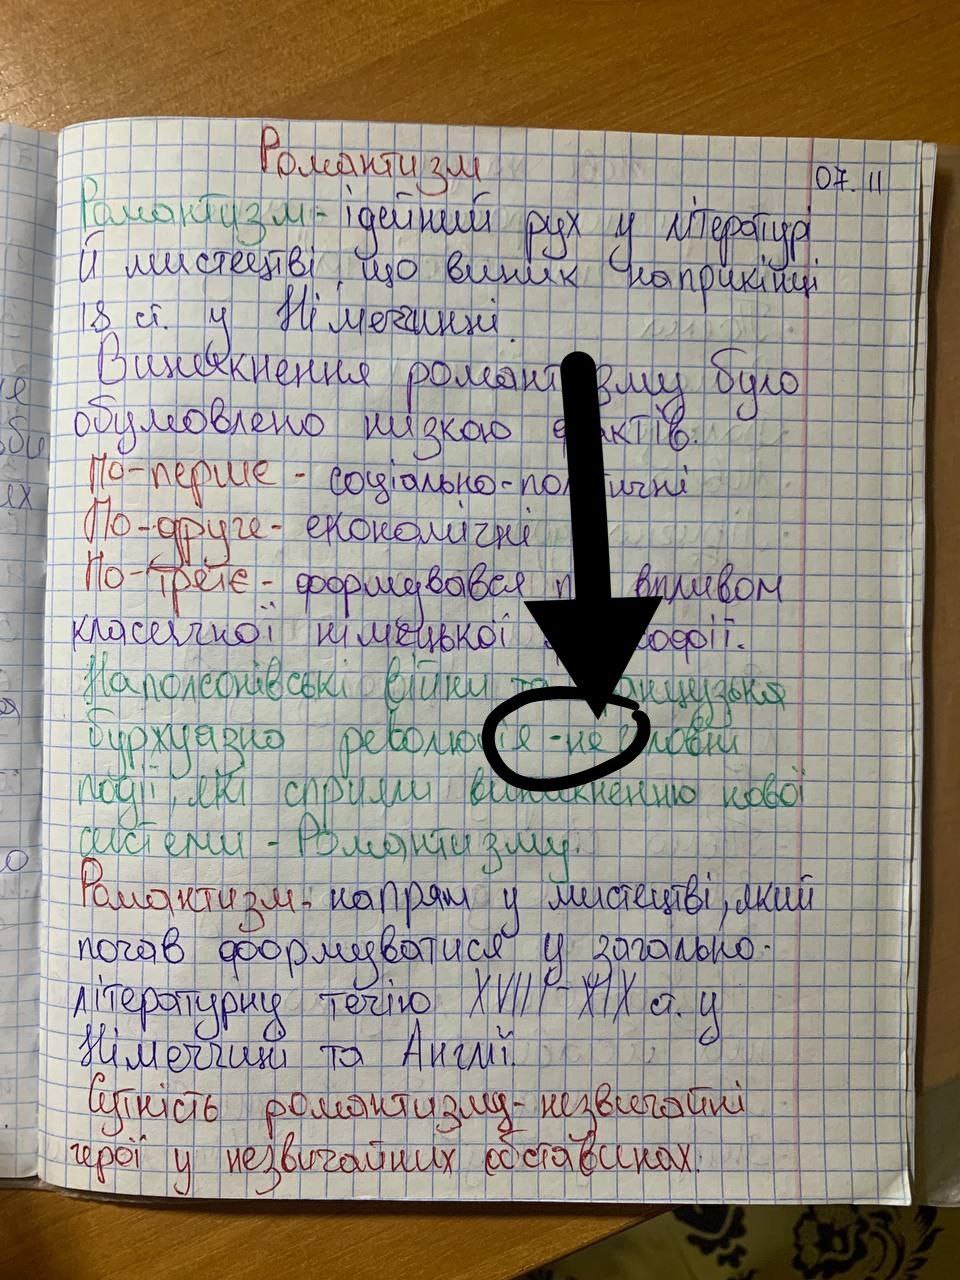 Романтизм
07.11
Романтизм - ідейний рух у літературі
й мистецтві, що виник наприкінці
18 ст. у Німеччині.
Виникнення романтизму було
обумовлено низкою фактів.
По-перше - соціально-політичні
По-друге - економічні
По-третє - формувався впливом
класичної німецької
Наполеонівські війни та
буржуазна революція - не головні
події, які сприяли виникненню нової
системи - Романтизму.
Романтизм - напрям у мистецтві, який
почав формуватися у загально-
літературну течію XVIII - XIX ст. у
Німеччині та Англії.
Сутність романтизму - незвичайні
герої у незвичайних обставинах.